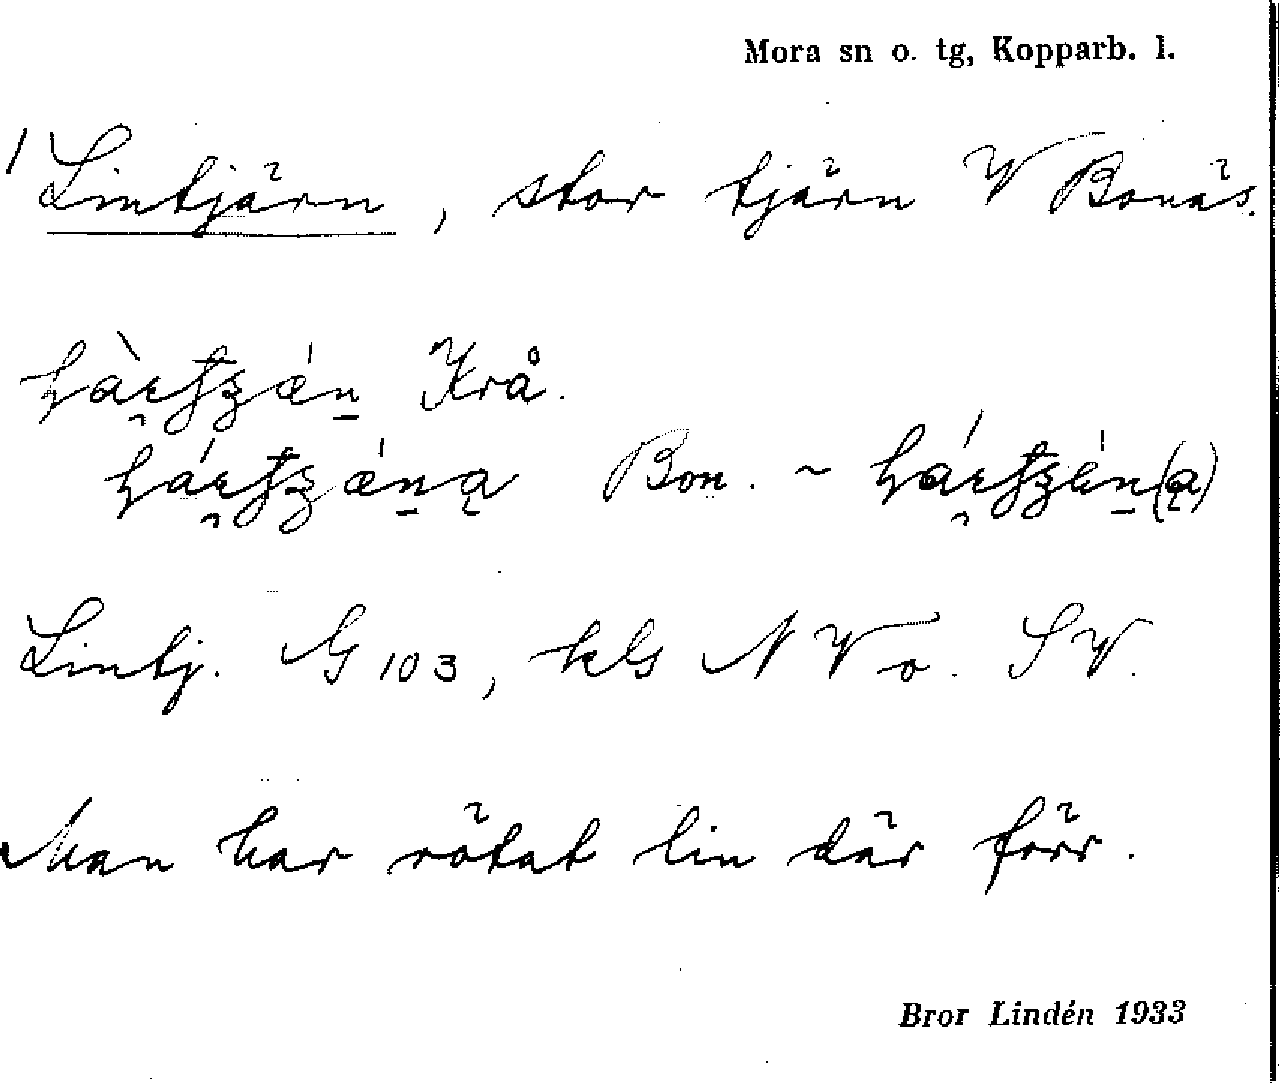 Mora sn o. tg, Kopparb. l.
1 Lintjärn, stor tjärn V Bonäs.
Krå.
Bon. ~
Lintj. G 103, kls NV o. SV.
Man har rötat lin där förr.
Bror Lindén 1933